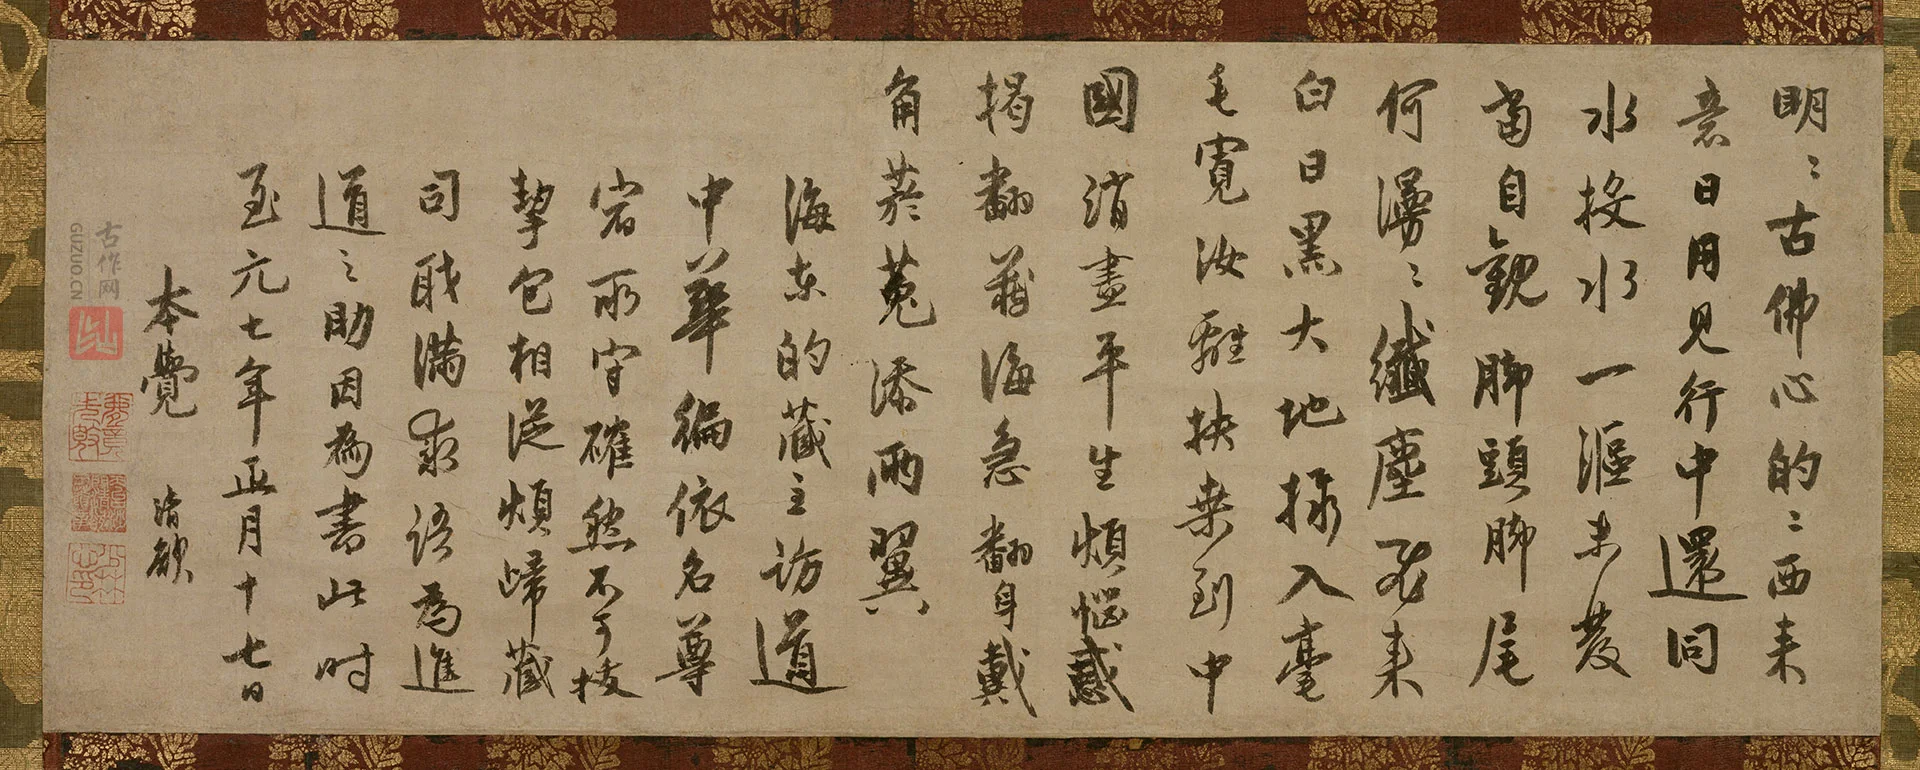 明〻古佛心的〻西来
意日用見行中還同
水投水一漚未發
當自觀脚頭脚尾
何漫〻纖塵飛来
白日黑大地撮入毫
毛寬汝離扶桒到中
國消盡平生煩惱惑
揭翻藏海急翻身戴
角菸菟添兩翼
海東的藏主訪道
中華徧依名尊
宿所守確然不可拔
挈包相從煩歸藏
司職滿求語為進
道之助因為書此時
至元七年正月十七日
本覺 清欲
古作网
GUZUO.CN